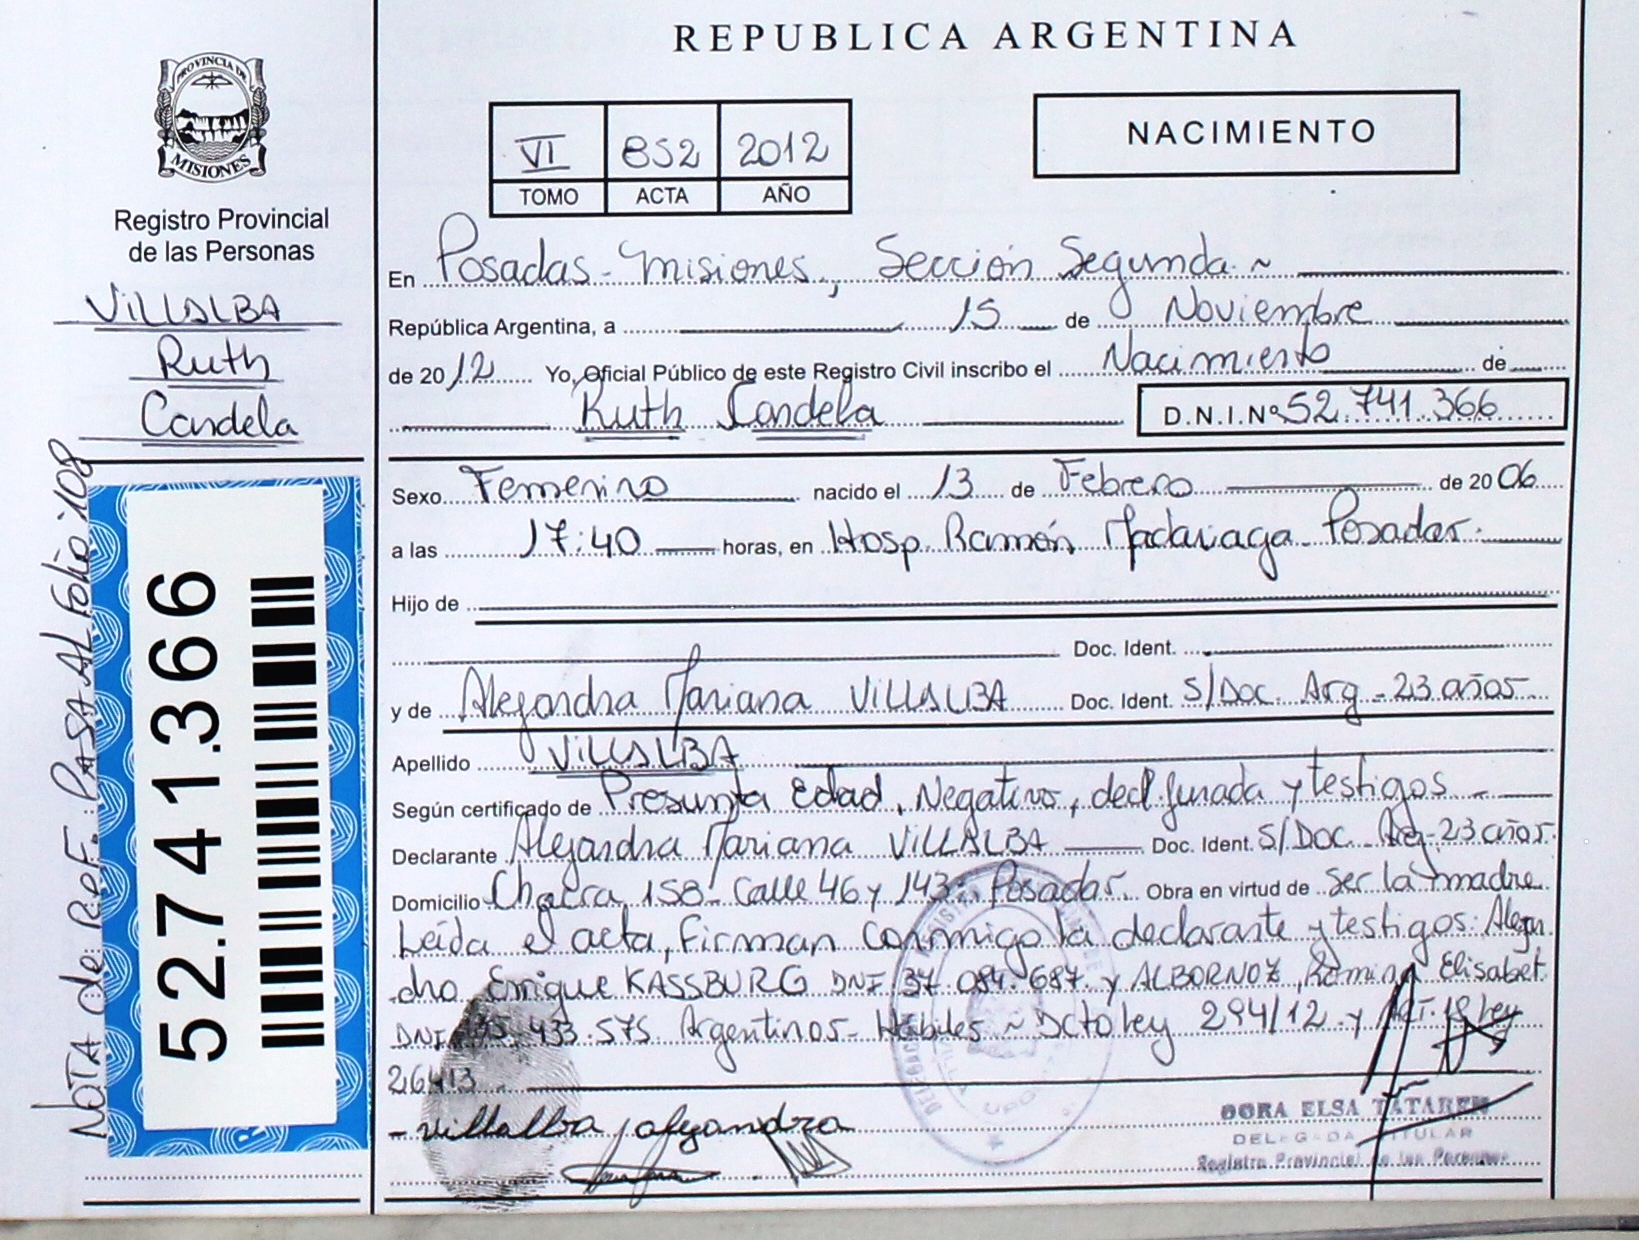 REPUBLICA ARGENTINA
PROVINCIA DE
MISIONES
Registro Provincial
de las Personas
VILLALBA
Ruth
Candela
NOTA de Ref. PASA AL Folio 108
52.741.366
VI 852 2012
TOMO ACTA AÑO
NACIMIENTO
En Posadas - Misiones, Sección Segunda. ~
República Argentina, a 15 de Noviembre
de 2012 Yo, Oficial Público de este Registro Civil inscribo el Nacimiento de
Ruth Candela D.N.I.Nº 52.741.366
Sexo Femenino nacido el 13 de Febrero de 2006
a las 17:40 horas, en Hosp. Ramón Madariaga - Posadas.
Hijo de
Doc. Ident.
y de Alejandra Mariana VILLALBA Doc. Ident. S/Doc. Arg - 23 años
Apellido VILLALBA
Según certificado de Presunta Edad, Negativo, decl. jurada y testigos
Declarante Alejandra Mariana VILLALBA Doc. Ident. S/Doc. Arg - 23 años.
Domicilio Chacra 158 - Calle 46 y 143 - Posadas. Obra en virtud de ser la madre
Leída el acta, firman conmigo la declarante y testigos: Alejan
dro Enrique KASSBURG DNI 37.084.687 y ALBORNOZ, Romina Elisabet
DNI 433.575 Argentinos - Hábiles ~ Dcto ley 294/12 y Art. 18 Ley
26413
- Villalba alejandra
DORA ELSA TATAREN
DELEGADA TITULAR
Registro Provincial de las Personas